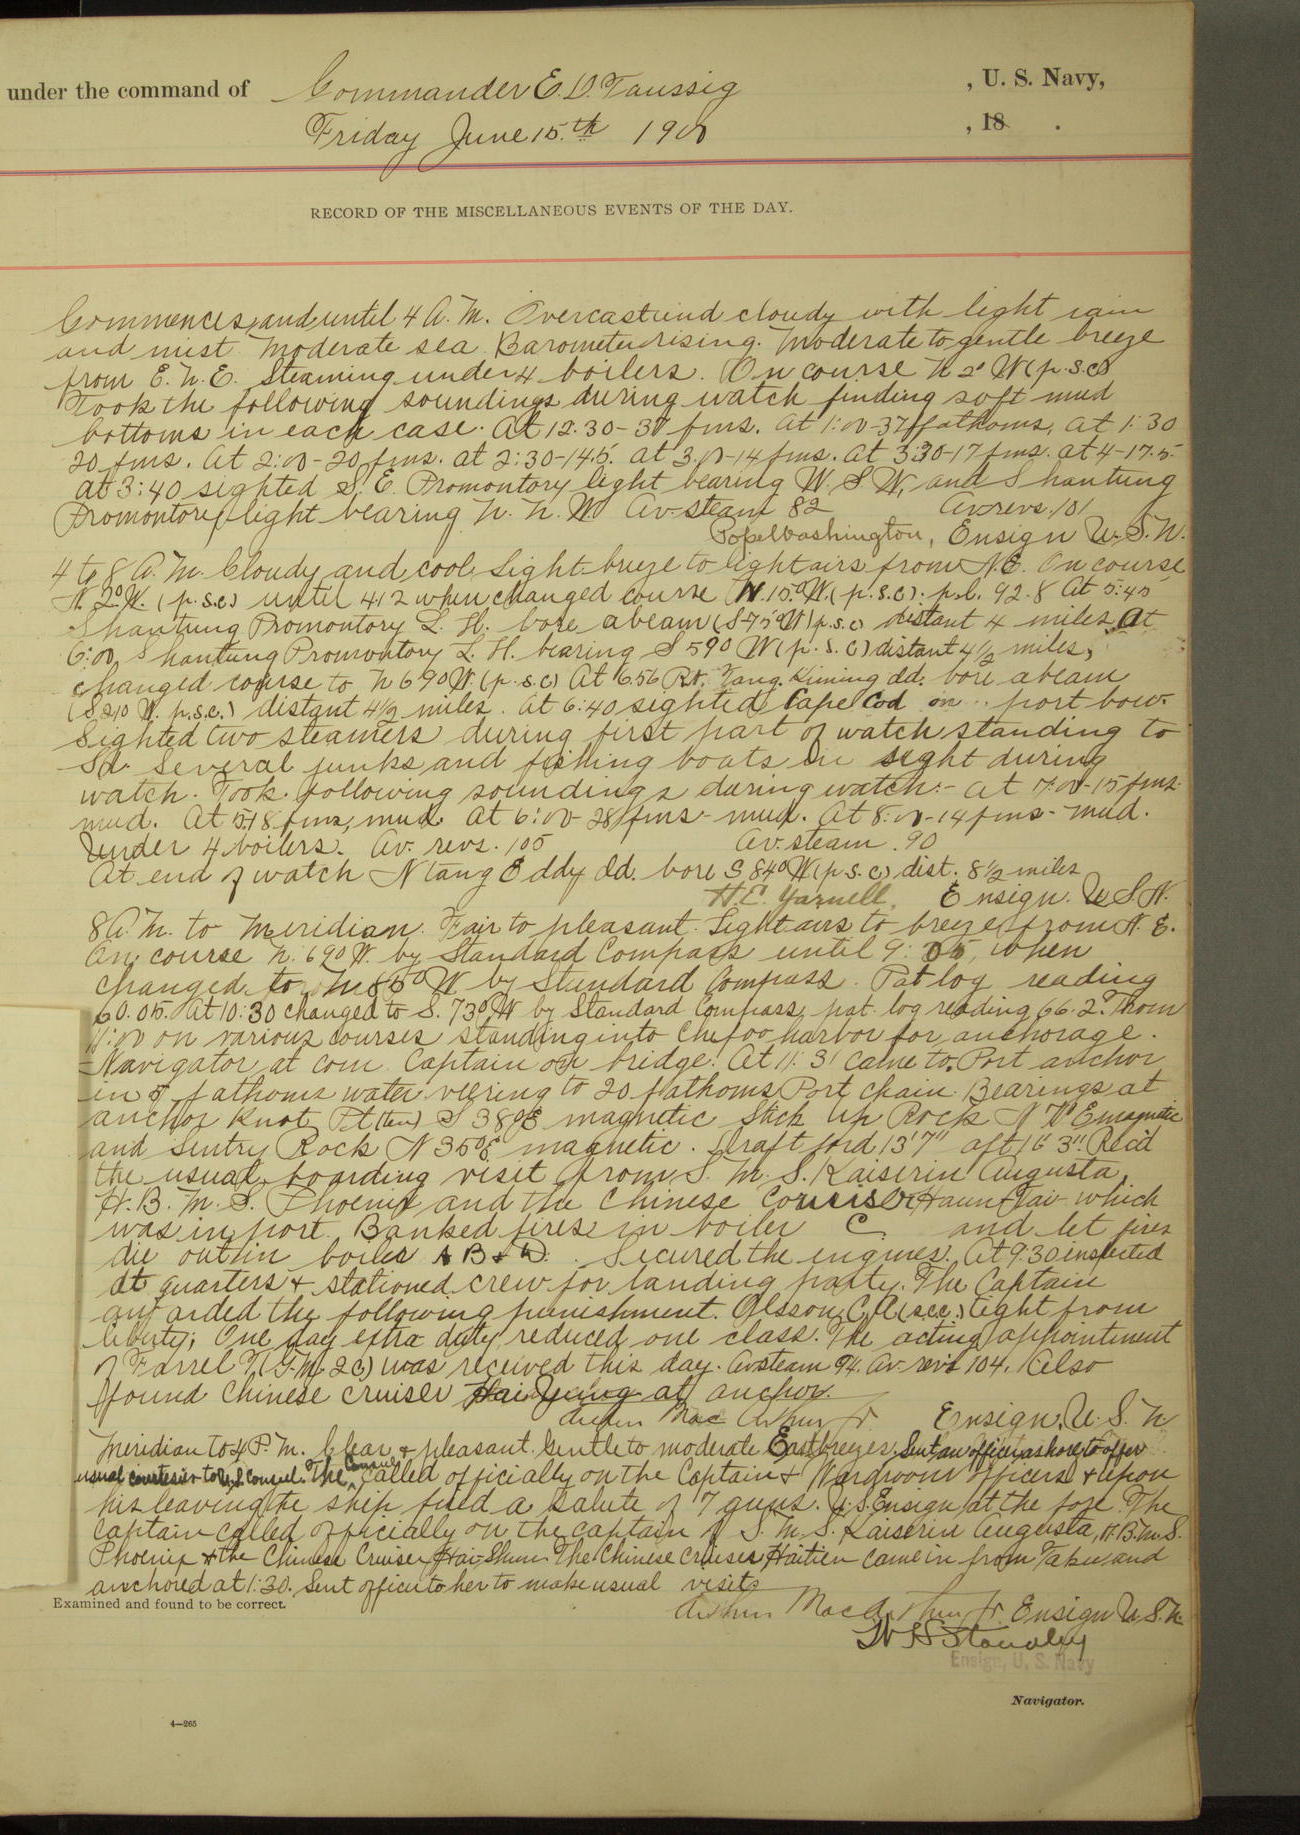 under the command of Commander E. D. Taussig , U. S. Navy,
Friday June 15th 1900 , 18 .
RECORD OF THE MISCELLANEOUS EVENTS OF THE DAY.
Commences and until 4 A. M. Overcast and cloudy with light rain
and mist. Moderate sea. Barometer rising. Moderate to gentle breeze
from E. N. E. Steaming under 4 boilers. On course N 2° W (p.s.c.)
Took the following soundings during watch finding soft mud
bottoms in each case. At 12.30-37 fms. at 1:00-37 fathoms, at 1:30
20 fms. At 2:00-20 fms. at 2:30-14.5. at 3.00-14 fms. at 3:30-17 fms. at 4-17.5-
at 3:40 sighted S. E. Promontory light bearing W. S. W, and Shantung
Promontory light bearing N. N. W. Av. steam 82 Av. revs. 101
Pope Washington, Ensign U. S. N.
4 to 8 A. M. Cloudy and cool. Light breeze to light airs from N. E. On course
N. 2° W. (p.s.c) until 4:12 when changed course N. 15° W. (p.s.c). p.l. 92.8 At 5:45
Shantung Promontory L. H. bore abeam (S 75° W) p.s.c distant 4 miles. At
6:00 Shantung Promontory L. H. bearing S 59° W (p.s.c) distant 4 1/2 miles,
changed course to N 69° W. (p.s.c) At 6.56 Pt. Yang. Kiming dd: bore abeam
(S 21° W. p.s.c.) distant 4 1/2 miles. At 6:40 sighted Cape Cod on port bow.
Sighted two steamers during first part of watch standing to
Sd. Several junks and fishing boats in sight during
watch. Took following soundings during watch:- at 7:00-15 fms.
mud. At 5-18 fms, mud. At 6:00-28 fms- mud. At 8:00-14 fms- mud.
Under 4 boilers. Av. revs. 105 Av. steam. 90
At end of watch N tang Eddy dd. bore S 84° W (p.s.c) dist. 8 1/2 miles
H.E. Yarnell, Ensign. U S. N.
8 A. M. to Meridian. Fair to pleasant. Light airs to breeze from N. E.
On course N. 69° W. by Standard Compass until 9:05, when
changed to N 85° W. by Standard Compass. Pat log reading
60.05. At 10:30 changed to S. 73° W by Standard Compass, pat. log reading 66.2. From
11:00 on various courses standing into Chefoo harbor for anchorage.
Navigator at con. Captain on bridge. At 11:31 came to, Port anchor
in 5 fathoms water veering to 20 fathoms Port chain. Bearings at
anchor Knot Pt (ten) S 38° E magnetic Stick Up Rock N E magnetic
and Sentry Rock N 35° E magnetic. Draft ford 13' 7" aft 3". Rec'd
the usual boarding visit from S. M. S. Kaiserin Augusta,
H. B. M. S. Phoenix and the Chinese Cruiser which
was in port. Banked fires in boiler C and let fires
die out in boiler A B & D. Secured the engines. At 9:30 inspected
at quarters & stationed crew for landing party. The Captain
awarded the following punishment. Olsson, C. A (sec.) Light from
liberty; One day extra duty, reduced one class. The acting appointment
of Farrel N (G.M. 2c) was received this day. Av. steam 94. Av. revs 104. Also
found Chinese cruiser Hai Yung at anchor.
Arthur Mac Arthur Jr Ensign, U. S. N
Meridian to 4 P. M. Clear & pleasant. Gentle to moderate East breezes. Sent an officer ashore to offer
usual courtesies to U.S. Consul. The Consul called officially on the Captain & Wardroom officers & upon
his leaving the ship fired a salute of 7 guns. U. S. Ensign at the fore. The
Captain called officially on the captain of S. M. S. Kaiserin Augusta, H. B. M. S.
Phoenix & the Chinese Cruiser Hai Shun. The Chinese cruiser Haitien came in from Taku and
anchored at 1:30. Sent officer to her to make usual visit.
Examined and found to be correct.
Arthur MacArthur Jr. Ensign U. S. N.
W H Standley
Ensign, U. S. Navy
Navigator.
4—265